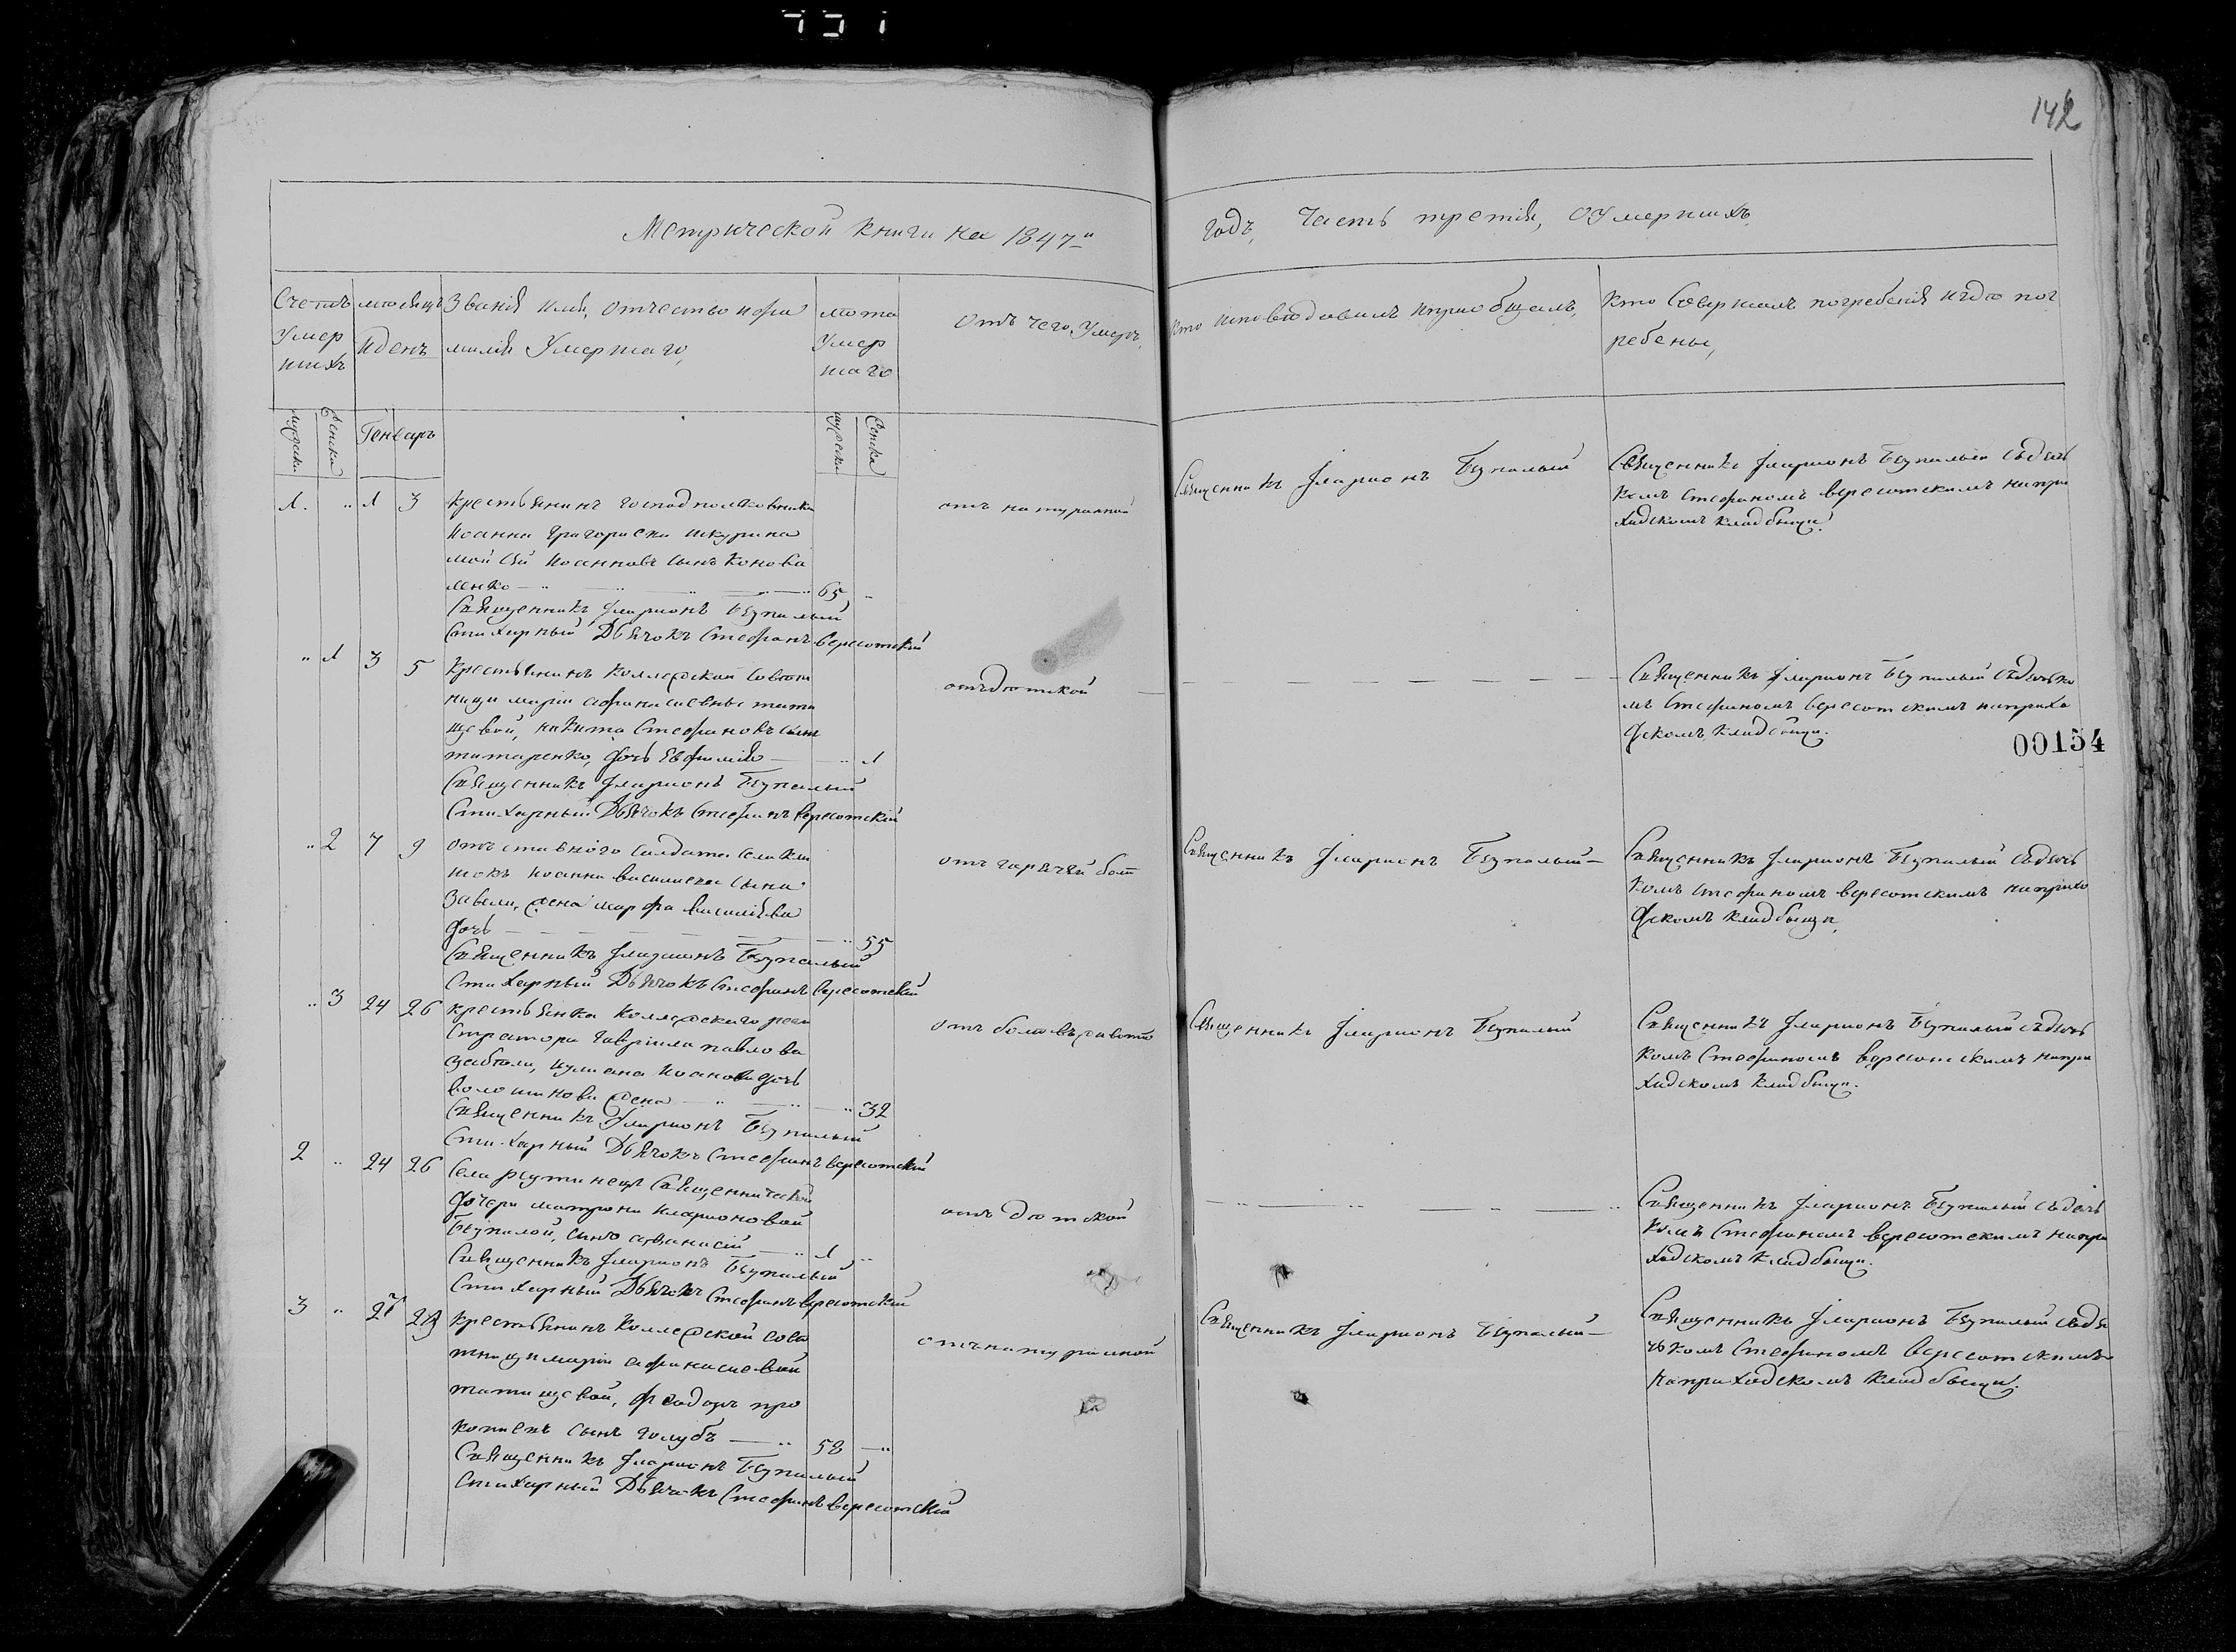 142
Метрической книги на 1847-й
годъ, Часть третія, О Умершихъ
Счетъ Умершихъ
месяцъ и день
Званія имя, отчество и фамилія Умершаго,
лета Умершаго
Отъ чего Умеръ,
Кто исповедовалъ и приобщалъ,
Кто Совершалъ погребенія и где погребены,
мужеска
женска
Генварь
мужеска
женска
1. " 1 3
крестьянинъ господ полковника
Иоанна Григориева
мойсей Иоанновъ сынъ Конова
ленко 65 "
Священникъ Иларионъ
Стихарный Дьячокъ Стефанъ Вересотскій
отъ натуральной
Священникъ Иларионъ
Священникъ Иларионъ съ дьяч
комъ Стефаномъ Вересотскимъ на при
ходскомъ кладбищи.
" 1 3 5
крестьянинъ коллежской советни
ницы марии афанасиевны тати
щевой, никита Стефановъ сынъ
титаренко, дочь Евфимія " 1
Священникъ Иларионъ
Стихарный Дьячокъ Стефанъ Вересотскій
отъ детской
Священникъ Иларионъ съ дьячко
мъ Стефаномъ Вересотскимъ на прихо
дскомъ кладбищи.
00154
" 2 7 9
отставного солдата
Иоанна василиева сына
жена марфа василіева
дочь " 55
Священникъ Иларионъ
Стихарный Дьячокъ Стефанъ Вересотскій
отъ гарячей бол
Священникъ Иларионъ
Священникъ Иларионъ съ дьяч
комъ Стефаномъ Вересотскимъ на прихо
дскомъ кладбищи,
" 3 24 26
крестьянка коллежскаго реги
стратора гавріила павлова
иулиана Иоанова дочь
волошинова жена " 32
Священникъ Иларионъ
Стихарный Дьячокъ Стефанъ Вересотскій
отъ
Священникъ Иларионъ
Священникъ Иларионъ съ дьяч
комъ Стефаномъ Вересотскимъ на при
ходскомъ кладбищи.
2 " 24 26
Села Реутинецъ Священнической
дочери матроны иларионовой
сынъ афанасій 1 "
Священникъ Иларионъ
Стихарный Дьячокъ Стефанъ Вересотскій
отъ детской
Священникъ Иларионъ съ дьяч
комъ Стефаномъ Вересотскимъ на при
ходскомъ кладбищи.
3 " 27
крестьянинъ коллежской сове
тницы марии афанасиевой
татищевой, феодоръ про
копиевъ сынъ голубъ 58 "
Священникъ Иларионъ
Стихарный Дьячокъ Стефанъ Вересотскій
отъ натуральной
Священникъ Иларионъ
Священникъ Иларионъ съ дья
чкомъ Стефаномъ Вересотскимъ
на приходскомъ кладбищи.